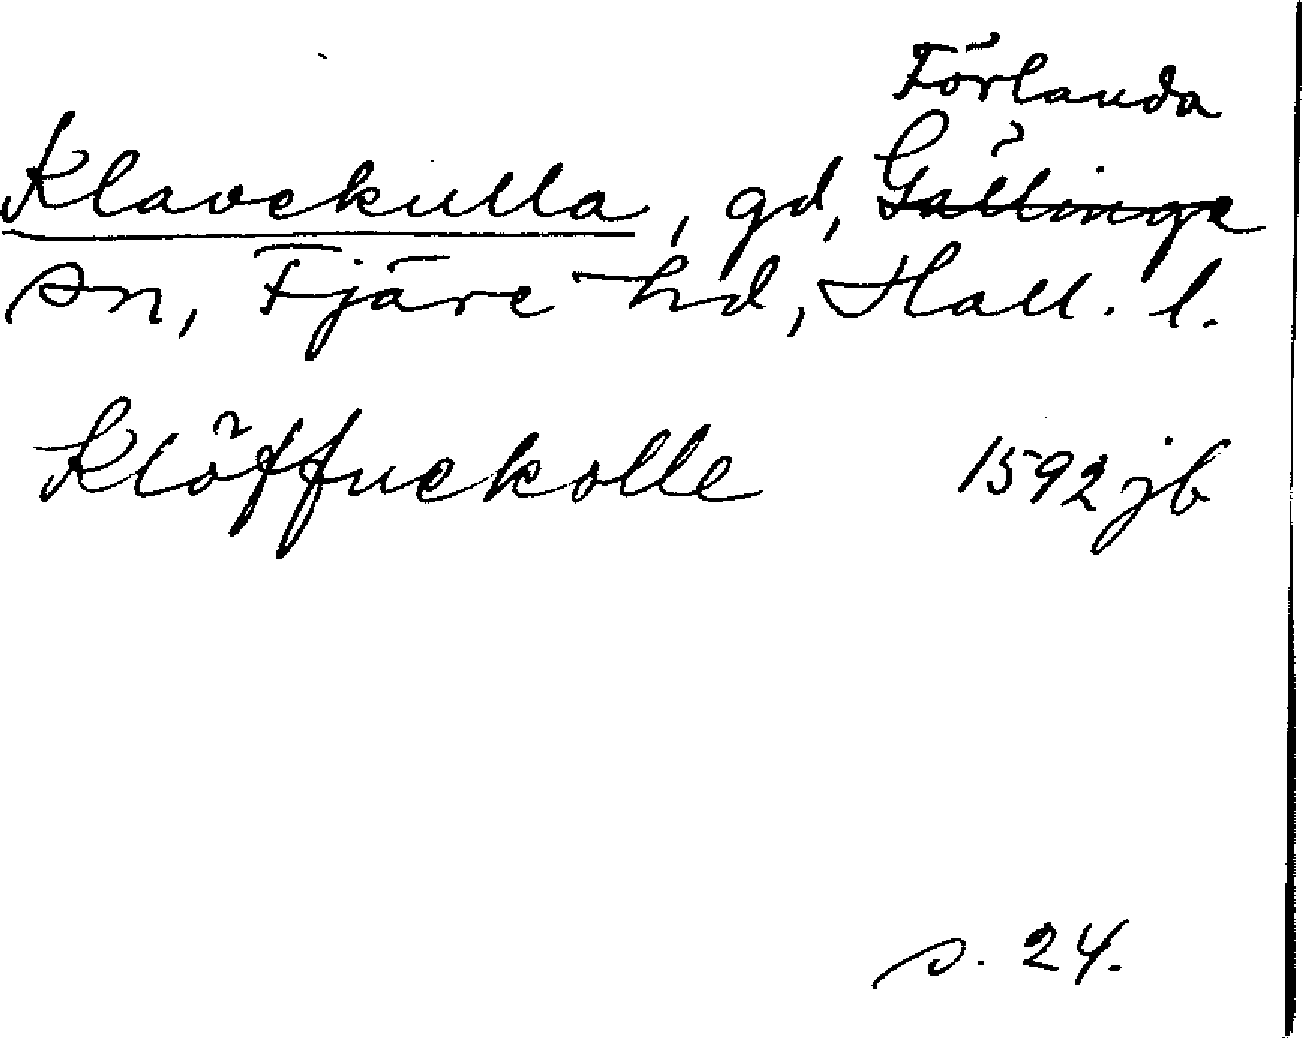 Förlanda
Klavekulla, gd, Gällinge
sn, Fjäre hd, Hall. l.
Klöffuekolle 1592 jb
s. 24.